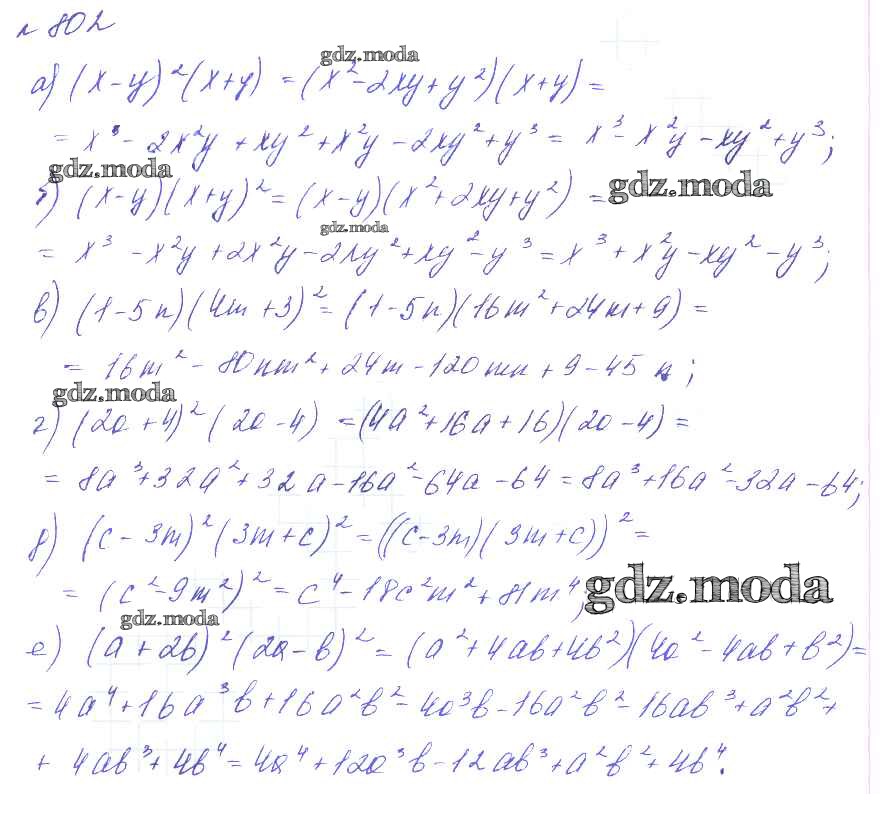 № 802
gdz.moda
а) (x-y)²(x+y) = (x²-2xy+y²)(x+y) =
= x³ - 2x²y + xy² + x²y - 2xy² + y³ = x³ - x²y - xy² + y³;
gdz.moda
б) (x-y)(x+y)² = (x-y)(x²+2xy+y²) =
gdz.moda
gdz.moda
= x³ - x²y + 2x²y - 2xy² + xy² - y³ = x³ + x²y - xy² - y³;
в) (1-5n)(4m+3)² = (1-5n)(16m²+24m+9) =
= 16m² - 80nm² + 24m - 120mn + 9 - 45n;
gdz.moda
г) (2a+4)²(2a-4) = (4a²+16a+16)(2a-4) =
= 8a³+32a²+32a-16a²-64a-64 = 8a³+16a²-32a-64;
д) (c-3m)²(3m+c)² = ((c-3m)(3m+c))² =
= (c²-9m²)² = c⁴-18c²m²+81m⁴;
gdz.moda
gdz.moda
е) (a+2b)²(2a-b)² = (a²+4ab+4b²)(4a²-4ab+b²) =
= 4a⁴+16a³b+16a²b²-4a³b-16a²b²-16ab³+a²b²+
+ 4ab³+4b⁴ = 4a⁴+12a³b-12ab³+a²b²+4b⁴.